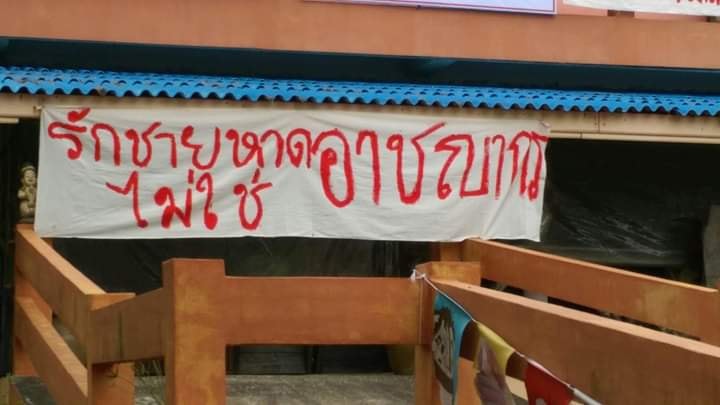 รักชายหาด
ไม่ใช่
อาชญากร